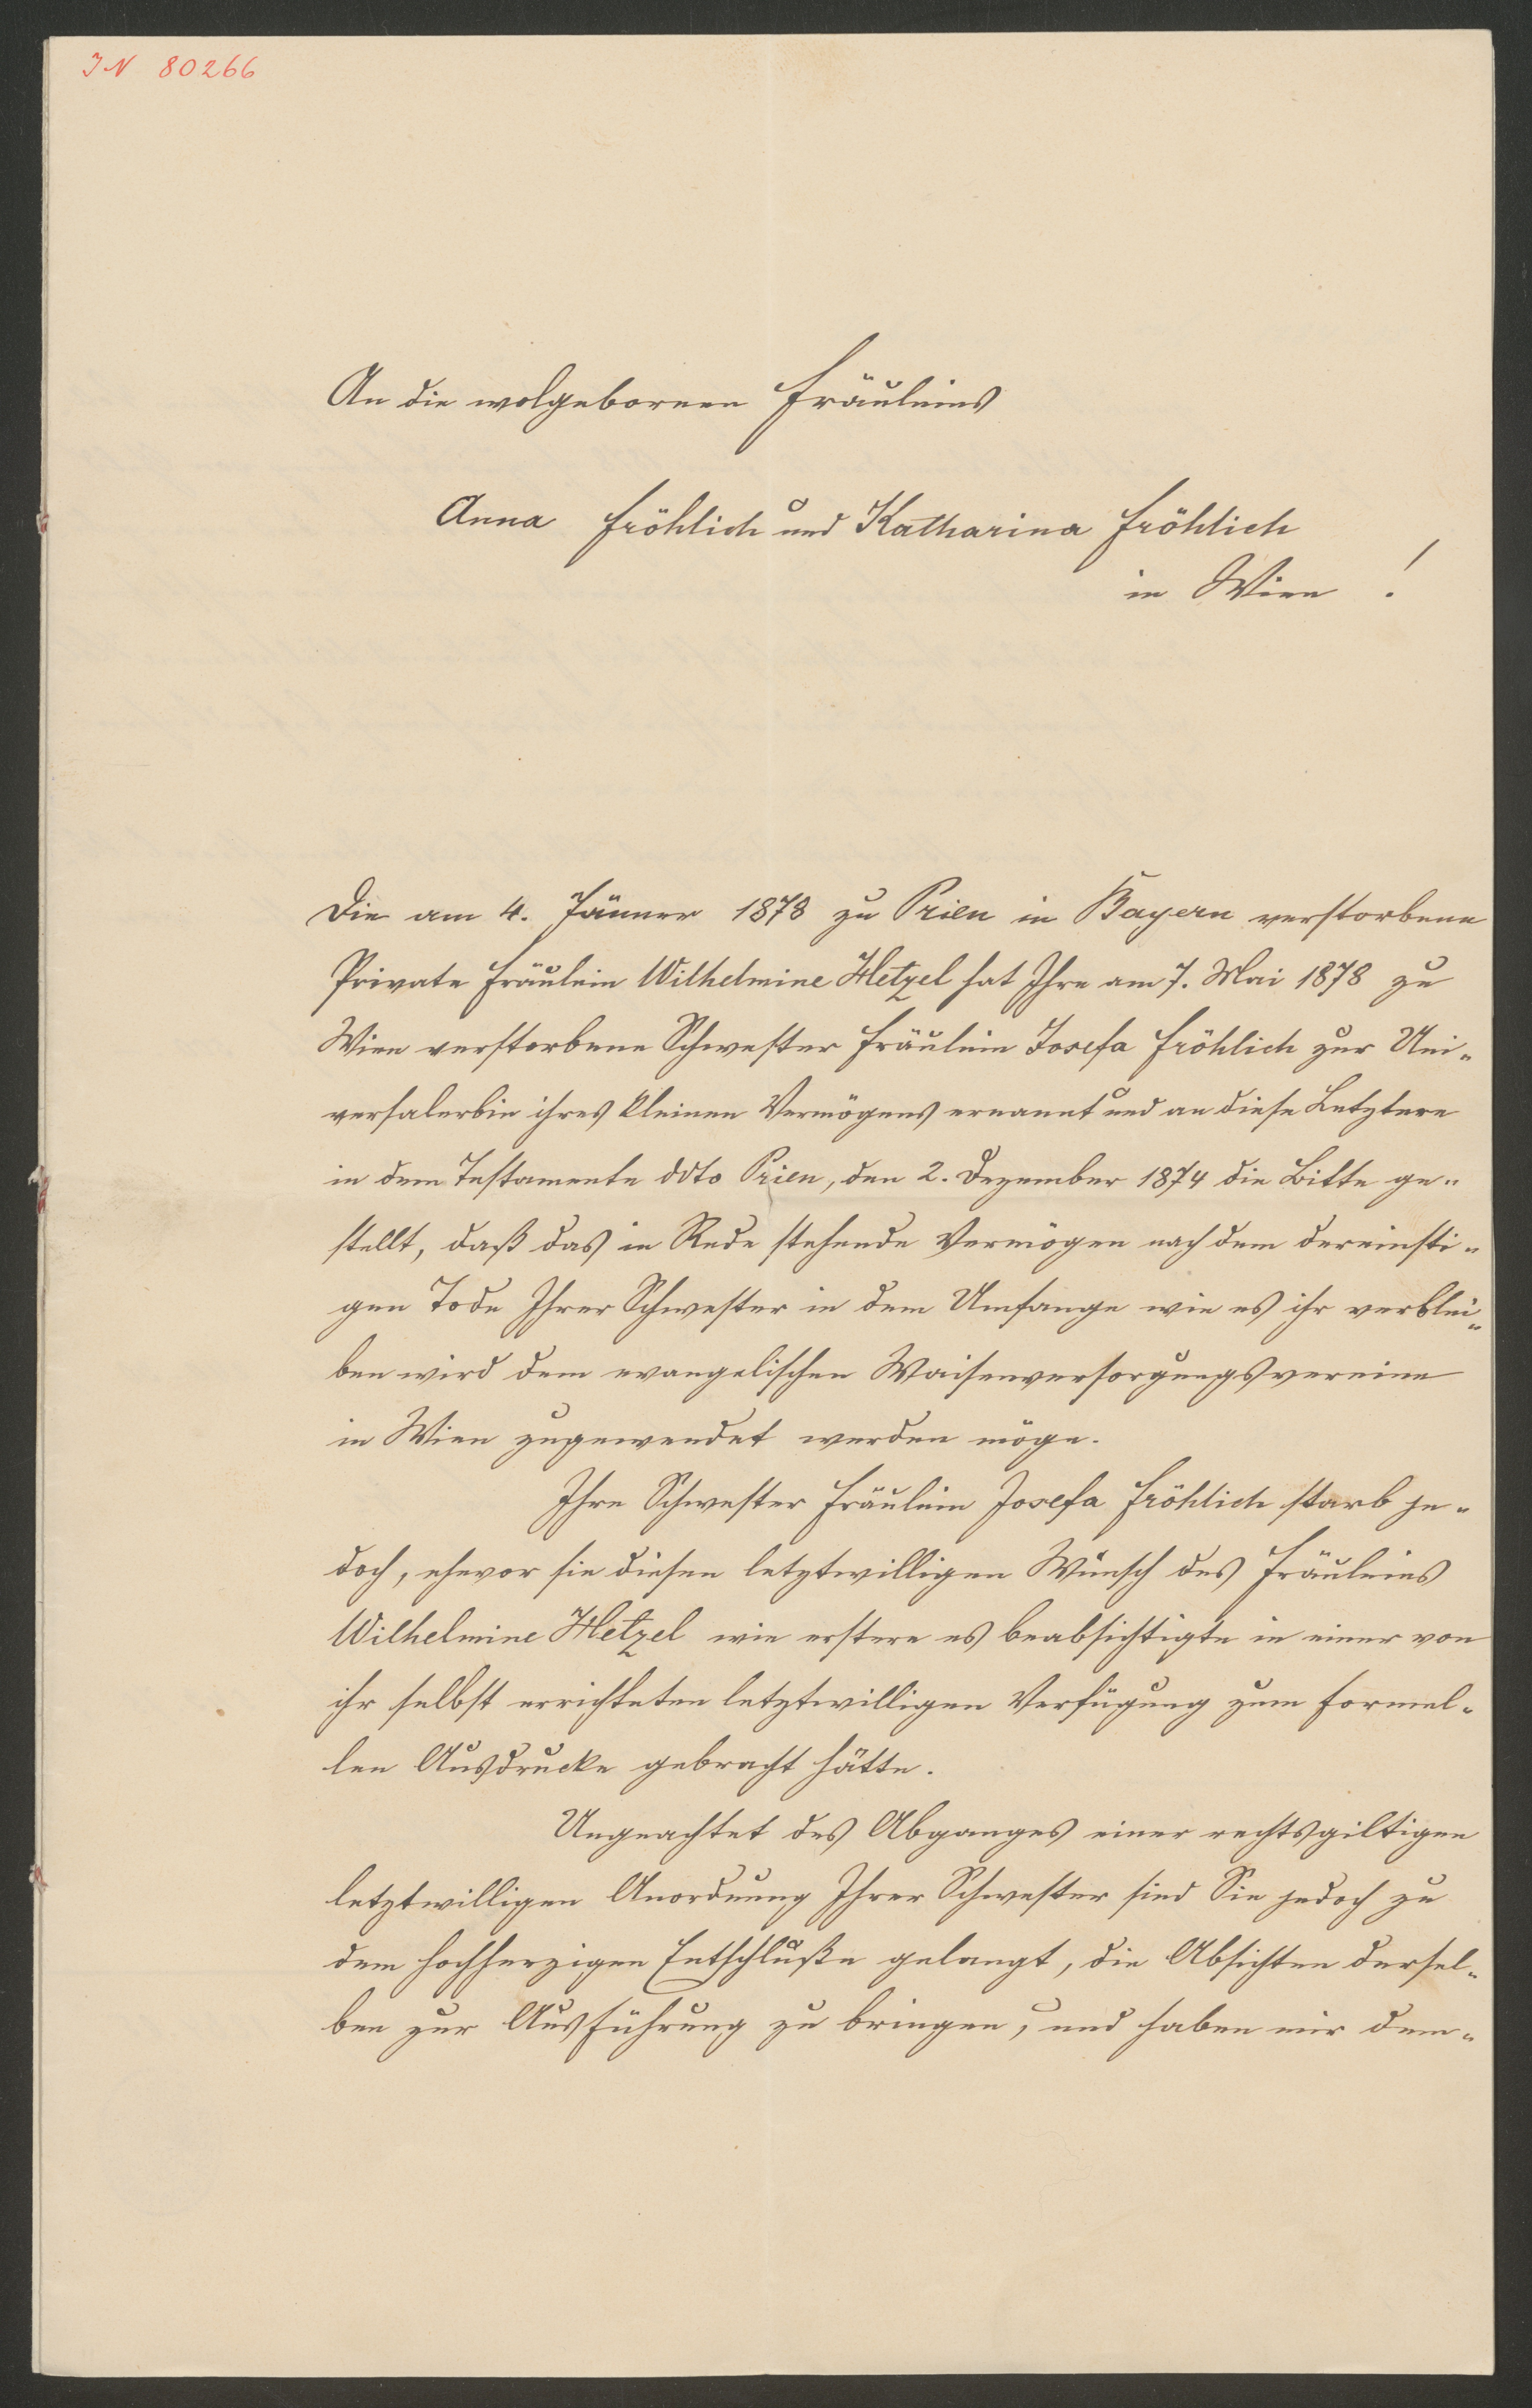 IN 80266
An die wolgebornen Fräuleins
Anna Fröhlich und Katharina Fröhlich
in Wien !
Die am 4. Jänner 1878 zu Prien in Bayern verstorbene
Private Fräulein Wilhelmine Hetzel hat Ihre am 7. Mai 1878 zu
Wien verstorbene Schwester Fräulein Josefa Fröhlich zur Uni-
versalerbin ihres kleinen Vermögens ernannt und an diese Letztere
in dem Testamente ddto Prien, den 2. Dezember 1874 die Bitte ge-
stellt, daß das in Rede stehende Vermögen nach dem dereinsti-
gen Tode Ihrer Schwester in dem Umfange wie es ihr verblei-
ben wird dem evangelischen Waisenversorgungsvereine
in Wien zugewendet werden möge.
Ihre Schwester Fräulein Josefa Fröhlich starb je-
doch, ehevor sie diesen letztwilligen Wunsch des Fräuleins
Wilhelmine Hetzel wie erstere es beabsichtigte in einer von
ihr selbst errichteten letztwilligen Verfügung zum formel-
len Ausdrucke gebracht hätte.
Ungeachtet des Abganges einer rechtsgiltigen
letztwilligen Anordnung Ihrer Schwester sind Sie jedoch zu
dem hochherzigen Entschluße gelangt, die Absichten dersel-
ben zur Ausführung zu bringen, und haben mir dem-